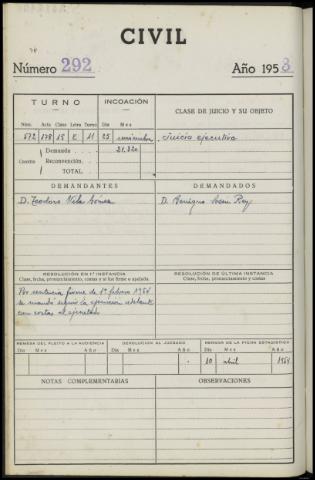 CIVIL
Número 292
Año 1958
TURNO
INCOACIÓN
CLASE DE JUICIO Y SU OBJETO
Núm. Acta Clase Letra Turno Día Mes
672 178 15 E 11 25 noviembre
Juicio ejecutivo
Cuantía
Demanda 21.320
Reconvención
TOTAL
DEMANDANTES
DEMANDADOS
D. Teodoro Vela Gómez
D. Benigno Rey
RESOLUCIÓN EN 1ª INSTANCIA
Clase, fecha, pronunciamiento, costas y si fué firme o apelada.
RESOLUCIÓN DE ÚLTIMA INSTANCIA
Clase, fecha, pronunciamiento y costas
Por sentencia firme de 1º febrero 1964
se mandó seguir la ejecución adelante
con costas al ejecutado
REMESA DEL PLEITO A LA AUDIENCIA
DEVOLUCIÓN AL JUZGADO
REMESA DE LA FICHA ESTADÍSTICA
Día Mes Año
Día Mes Año
Día Mes Año
10 abril 1964
NOTAS COMPLEMENTARIAS
OBSERVACIONES